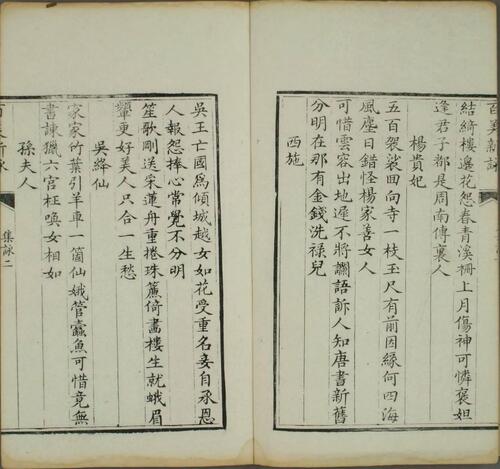 百美新詠
結綺樓邊花怨春青溪柵上月傷神可憐褒妲
逢君子都是周南傳裏人
楊貴妃
五百袈裟回向寺一枝玉尺有前因緣何四海
風塵日錯怪楊家善女人
可惜雲容出地遲不將讕語訴人知唐書新舊
分明在那有金錢洗祿兒
西施
吳王亡國爲傾城越女如花受重名妾自承恩
人報怨捧心常覺不分明
笙歌剛送采蓮舟重捲珠簾倚畫樓生就蛾眉
顰更好美人只合一生愁
吳絳仙
家家竹葉引羊車一箇仙娥管蠹魚可惜竟無
書諫獵六宮枉喚女相如
孫夫人
百美新詠 集詠二